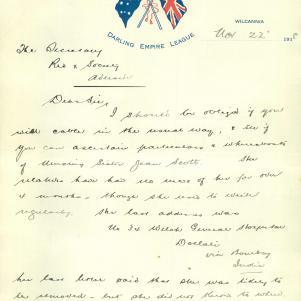 WILCANNIA
DARLING EMPIRE LEAGUE
Nov 22 1918
The Secretary
Red X Society
Adelaide
Dear Sir,
I should be obliged if you
will cable in the usual way, & see if
you can ascertain particulars & whereabouts
of Nursing Sister Jean Scott. Her
relatives have had no news of her for over
4 months - though she used to write
regularly. Her last address was
No 34 Welsh General Hospital
Deolali
via Bombay
India
her last letter said that she was likely to
be removed - but she did not know to where